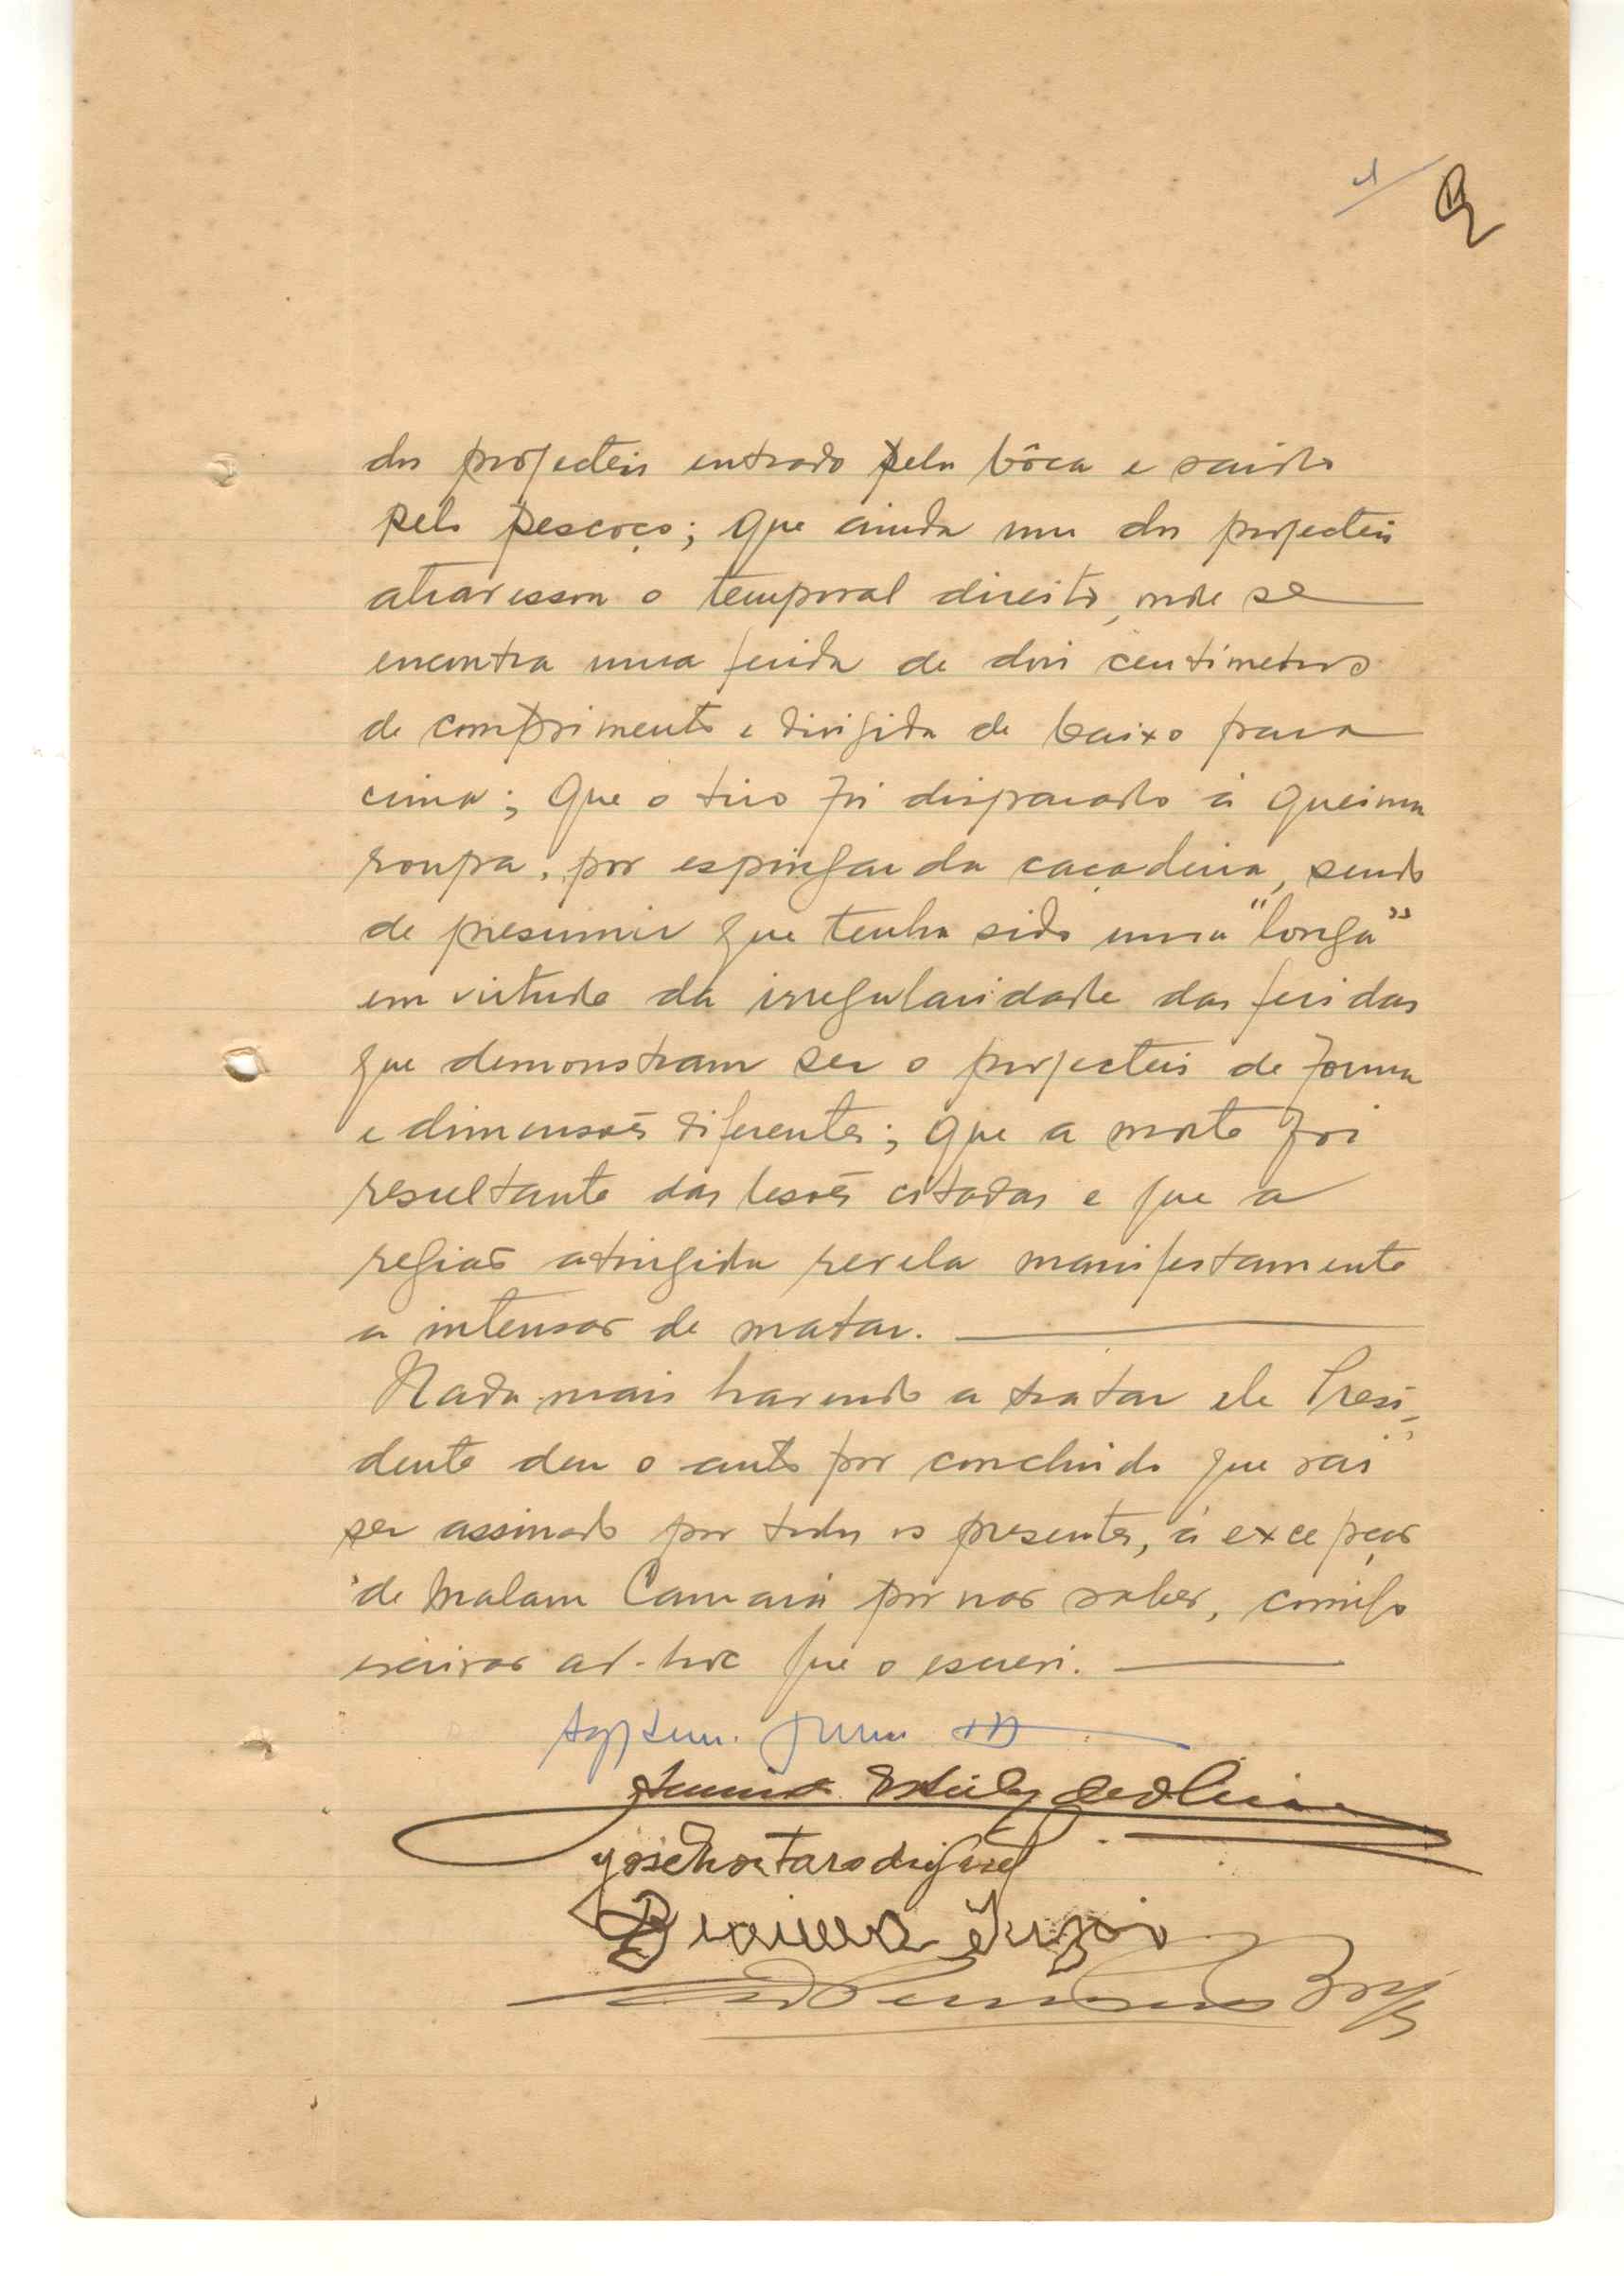 dos projecteis entrado pela bôca e saido
pelo pescoço; que ainda um dos projecteis
atravessou o temporal direito, onde se
encontra uma ferida de dois centimetros
de comprimento e dirigida de baixo para
cima; que o tiro foi disparado à queima
roupa, por espingarda caçadeira, sendo
de presumir que tenha sido uma "longa"
em virtude da irregularidade das feridas
que demonstram ser o projecteis de forma
e dimensões diferentes; que a morte foi
resultante das lesões citadas e que a
região atingida revela manifestamente
a intensão de matar.
Nada mais havendo a tratar ele Presi-
dente deu o auto por concluido que vai
ser assinado por todos os presentes, à excepção
de Malam Camará por não saber, comigo
escrivão ad-hoc que o escrevi.